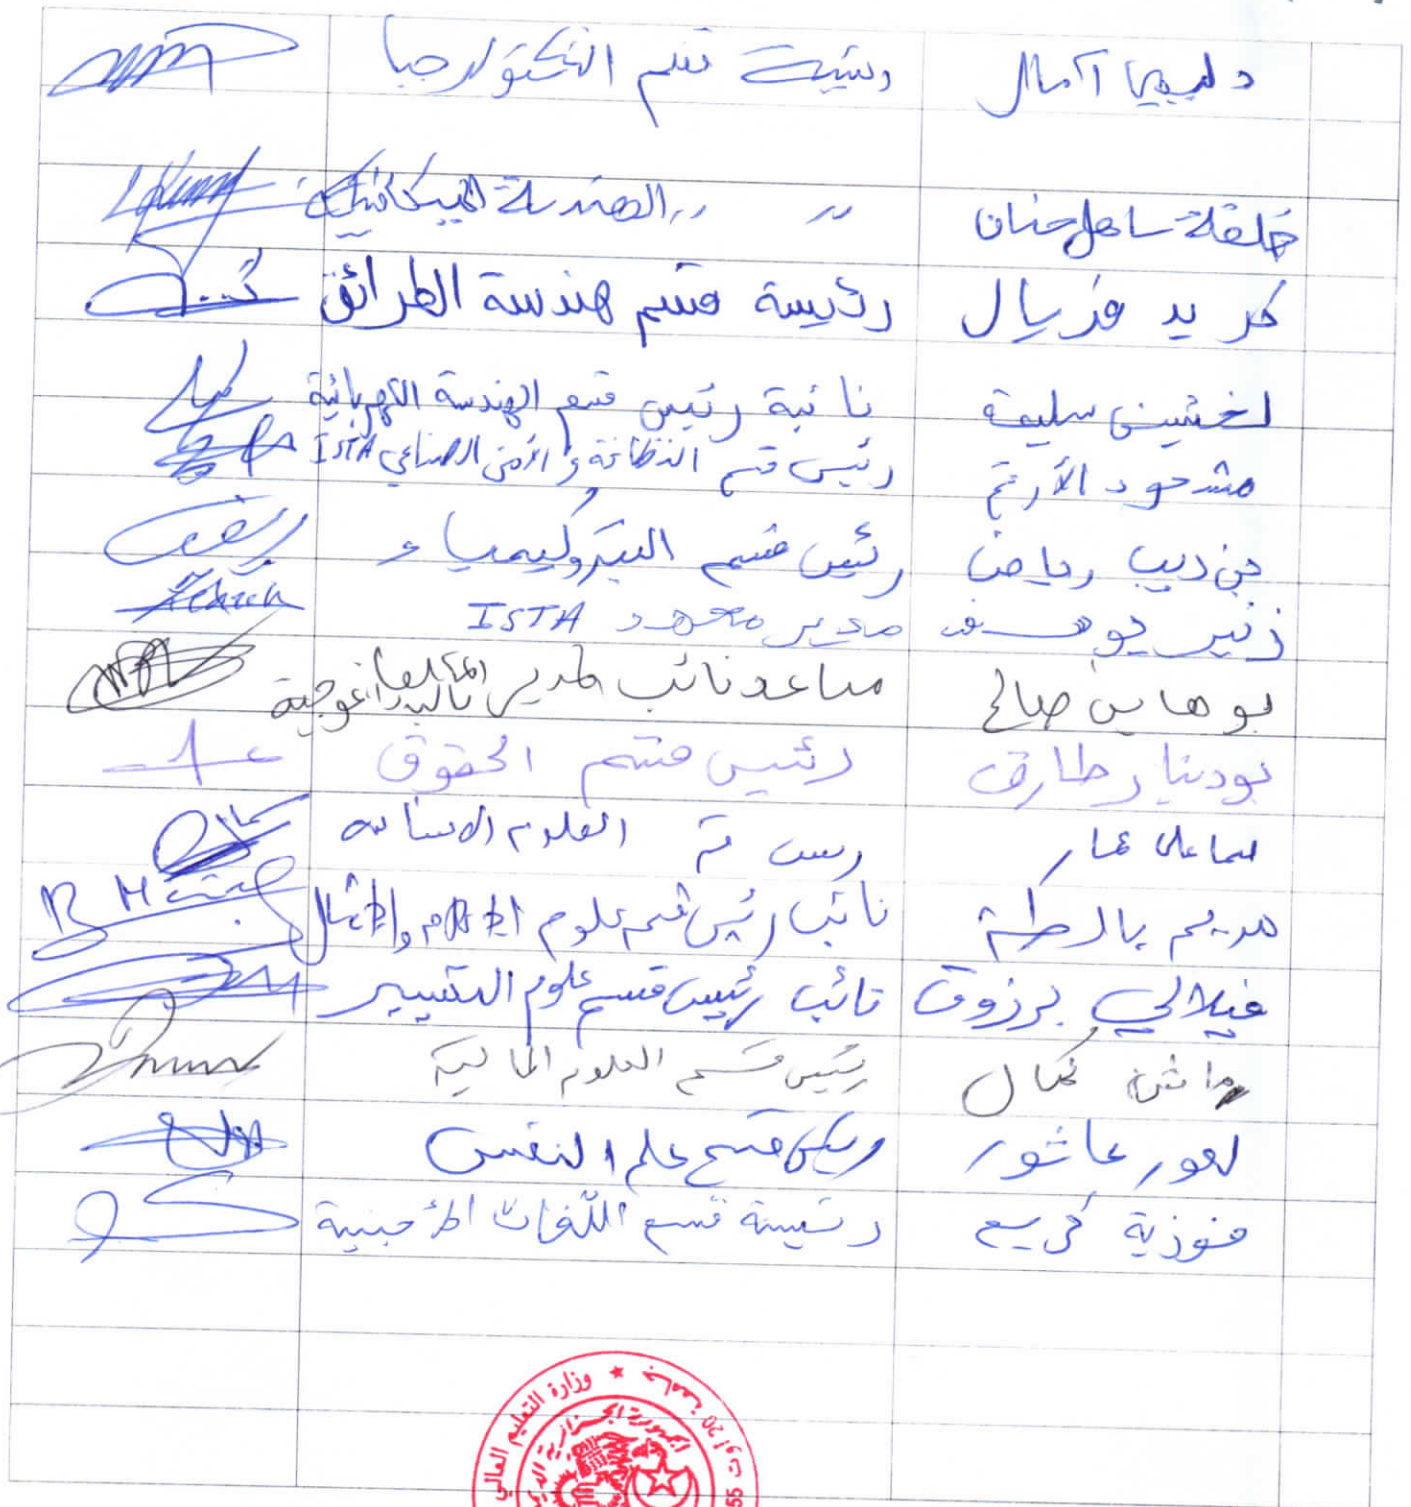 دليبيا آمال رئيسة قسم التكنولوجيا
خلفلة ساهل حنان // // الهندسة الميكانيكية
كريد فريال رئيسة قسم هندسة الطرائق
لخشين سليمة نائبة رئيس قسم الهندسة الكهربائية
مشحود الأرقم رئيس قسم النظافة و الأمن الصناعي ISTA
بن ديب رياض رئيس قسم البتروكيمياء
زنير يوسف مدير معهد ISTA
بوهاين صالح مساعد نائب المدير المكلف بالبيداغوجية
بودينار طارق رئيس قسم الحقوق
سماعلي عمار رئيس ق العلوم الإنسانية
مريم بالرطة نائب رئيس قسم علوم الإعلام والإتصال
فيلالي برزوق نائب رئيس قسم علوم التسيير
كمال رئيس قسم العلوم المالية
لعور عاشور رئيس قسم علم النفس
فوزية كريم رئيسة قسم اللّغات الأجنبية
وزارة التعليم العالي ★ جامعة 20 أوت 55
الجمهورية الجزائرية